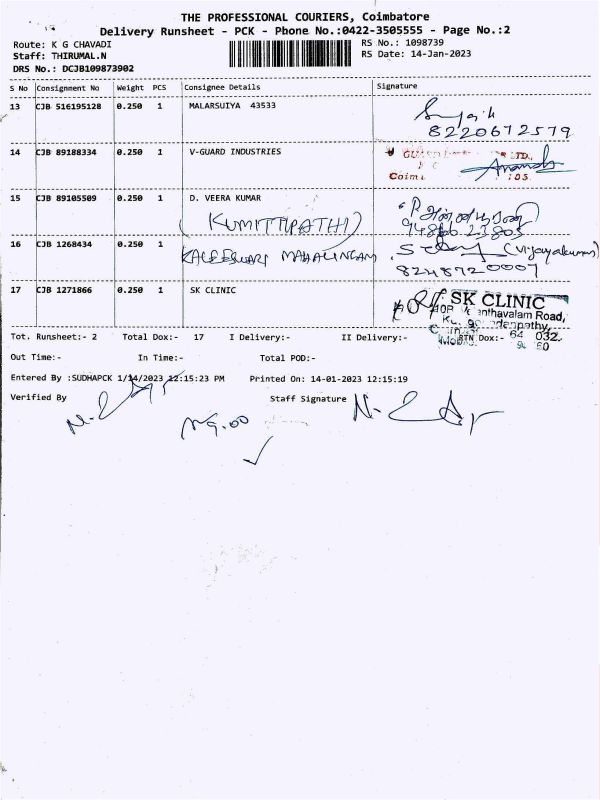 THE PROFESSIONAL COURIERS, Coimbatore
Delivery Runsheet - PCK - Phone No.:0422-3505555 - Page No.:2
Route: K G CHAVADI RS No.: 1098739
Staff: THIRUMAL.N RS Date: 14-Jan-2023
DRS No.: DCJB109873902
S No Consignment No Weight PCS Consignee Details Signature
13 CJB 516195128 0.250 1 MALARSUIYA 43533
8220672579
14 CJB 89188334 0.250 1 V-GUARD INDUSTRIES
15 CJB 89105509 0.250 1 D. VEERA KUMAR
(KUMITTIPATHI)
16 CJB 1268434 0.250 1 KALEESWARI MAHALINGAM (Vijayakumar)
8248720007
17 CJB 1271866 0.250 1 SK CLINIC SK CLINIC
Road,
Tot. Runsheet:- 2 Total Dox:- 17 I Delivery:- II Delivery:- RTN Dox:-
Out Time:- In Time:- Total POD:-
Entered By :SUDHAPCK 1/14/2023 12:15:23 PM Printed On: 14-01-2023 12:15:19
Verified By Staff Signature